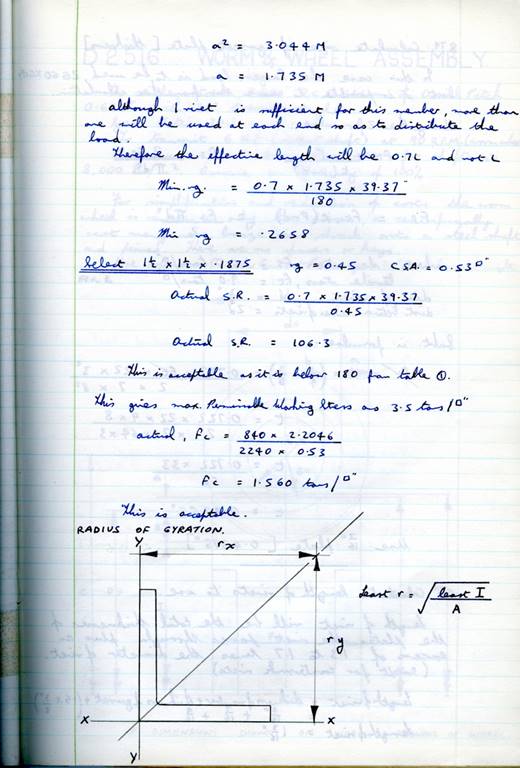 a² = 3.044 M
a = 1.735 M
although 1 rivet is sufficient for this member, more than
one will be used at each end so as to distribute the
load.
Therefore the effective length will be 0.7L and not L
Min. rg. = 0.7 x 1.735 x 39.37"
180
Min rg = .2658
Select 1½ x 1½ x .1875 rg = 0.45 CSA = 0.53□"
actual S.R. = 0.7 x 1.735 x 39.37
0.45
actual S.R. = 106.3
This is acceptable as it is below 180 from table ①.
This gives max. Permissible Working Stress as 3.5 tons/□"
actual, Fc = 840 x 2.2046
2240 x 0.53
Fc = 1.560 tons/□"
This is acceptable.
RADIUS OF GYRATION.
Y
rx
Least r = √ least I
A
ry
X X
Y